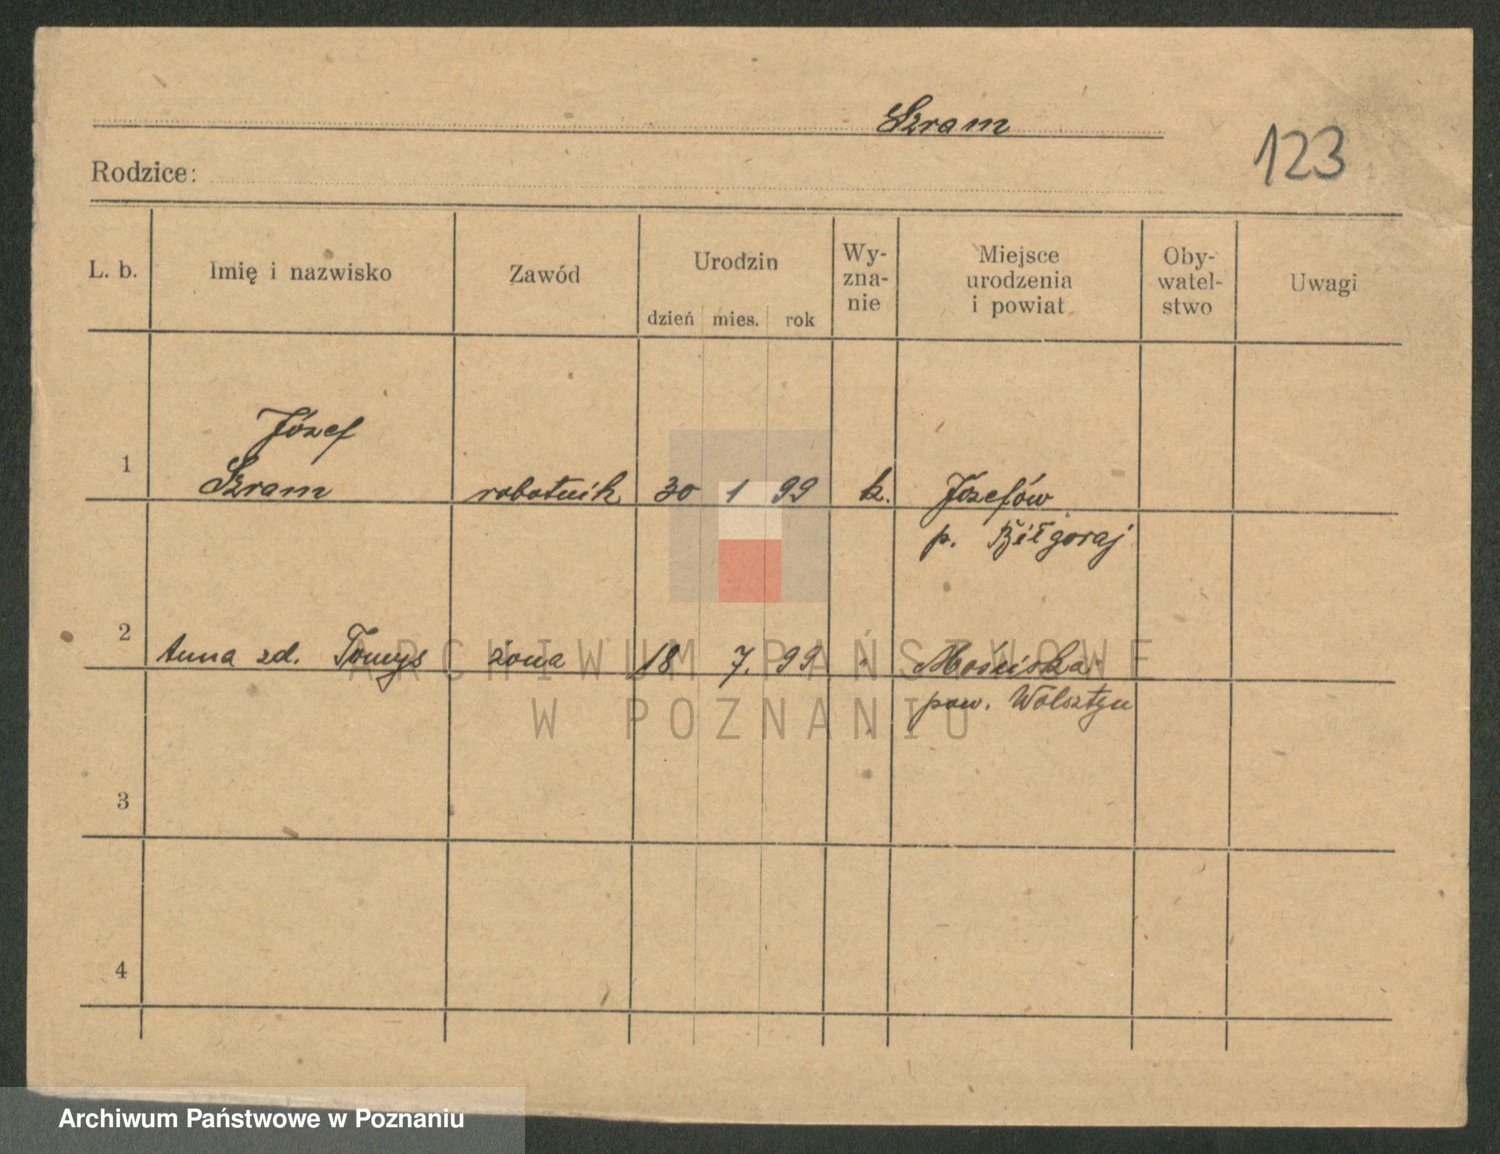 Szram
123
Rodzice:
L. b. Imię i nazwisko Zawód Urodzin dzień mies. rok Wy-zna-nie Miejsce urodzenia i powiat Oby-watel-stwo Uwagi
Józef
1 Szram robotnik 30 1 99 k. Józefów
p. Biłgoraj
2 Anna zd. Tomys żona 18 7. 99 " Mościska
pow. Wolsztyn
3
4
ARCHIWUM PAŃSTWOWE
W POZNANIU
Archiwum Państwowe w Poznaniu